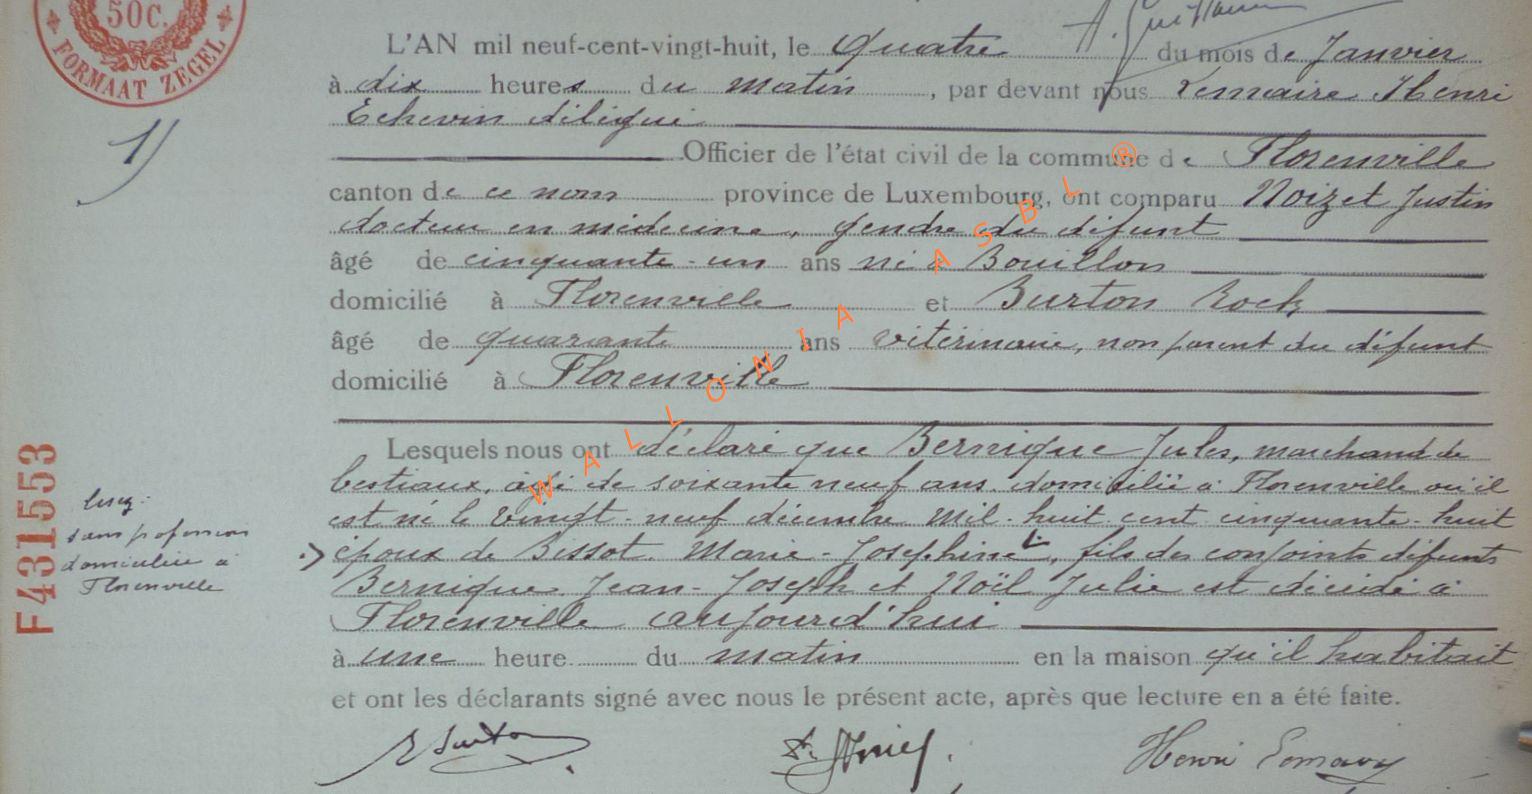 50C.
FORMAAT ZEGEL
L'AN mil neuf-cent-vingt-huit, le quatre du mois de Janvier
à dix heures du matin, par devant nous Lemaire Henri
Echevin délégué
1)
Officier de l'état civil de la commune de Florenville
canton de ce nom province de Luxembourg, ont comparu Noizet Justin
docteur en médecine, gendre du défunt
âgé de cinquante-un ans né à Bouillon
domicilié à Florenville et Burton Rock
âgé de quarante ans vétérinaire, non parent du défunt
domicilié à Florenville
Lesquels nous ont déclaré que Bernique Jules, marchand de
bestiaux, âgé de soixante neuf ans domicilié à Florenville où il
est né le vingt-neuf décembre mil-huit cent cinquante-huit
époux de Bissot Marie-Joséphine, fils des conjoints défunts
Bernique Jean-Joseph et Noël Julie est décédé à
Florenville aujourd'hui
à une heure du matin en la maison qu'il habitait
et ont les déclarants signé avec nous le présent acte, après que lecture en a été faite.
sans profession
domiciliée à
Florenville
F431553
WALLONIA ASBL ®
Burton
Henri